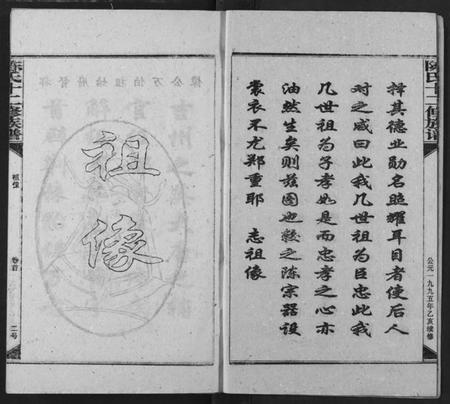 陈氏十二修族谱
公元一九九五年乙亥续修
择其德业勋名照耀耳目者使后人
对之咸曰此我几世祖为臣忠此我
几世祖为子孝如是而忠孝之心亦
油然生矣则兹图也较之陈宗器设
裳衣不尤郑重耶 志祖像
祖像
陈氏十二修族谱
祖像
卷首
二号